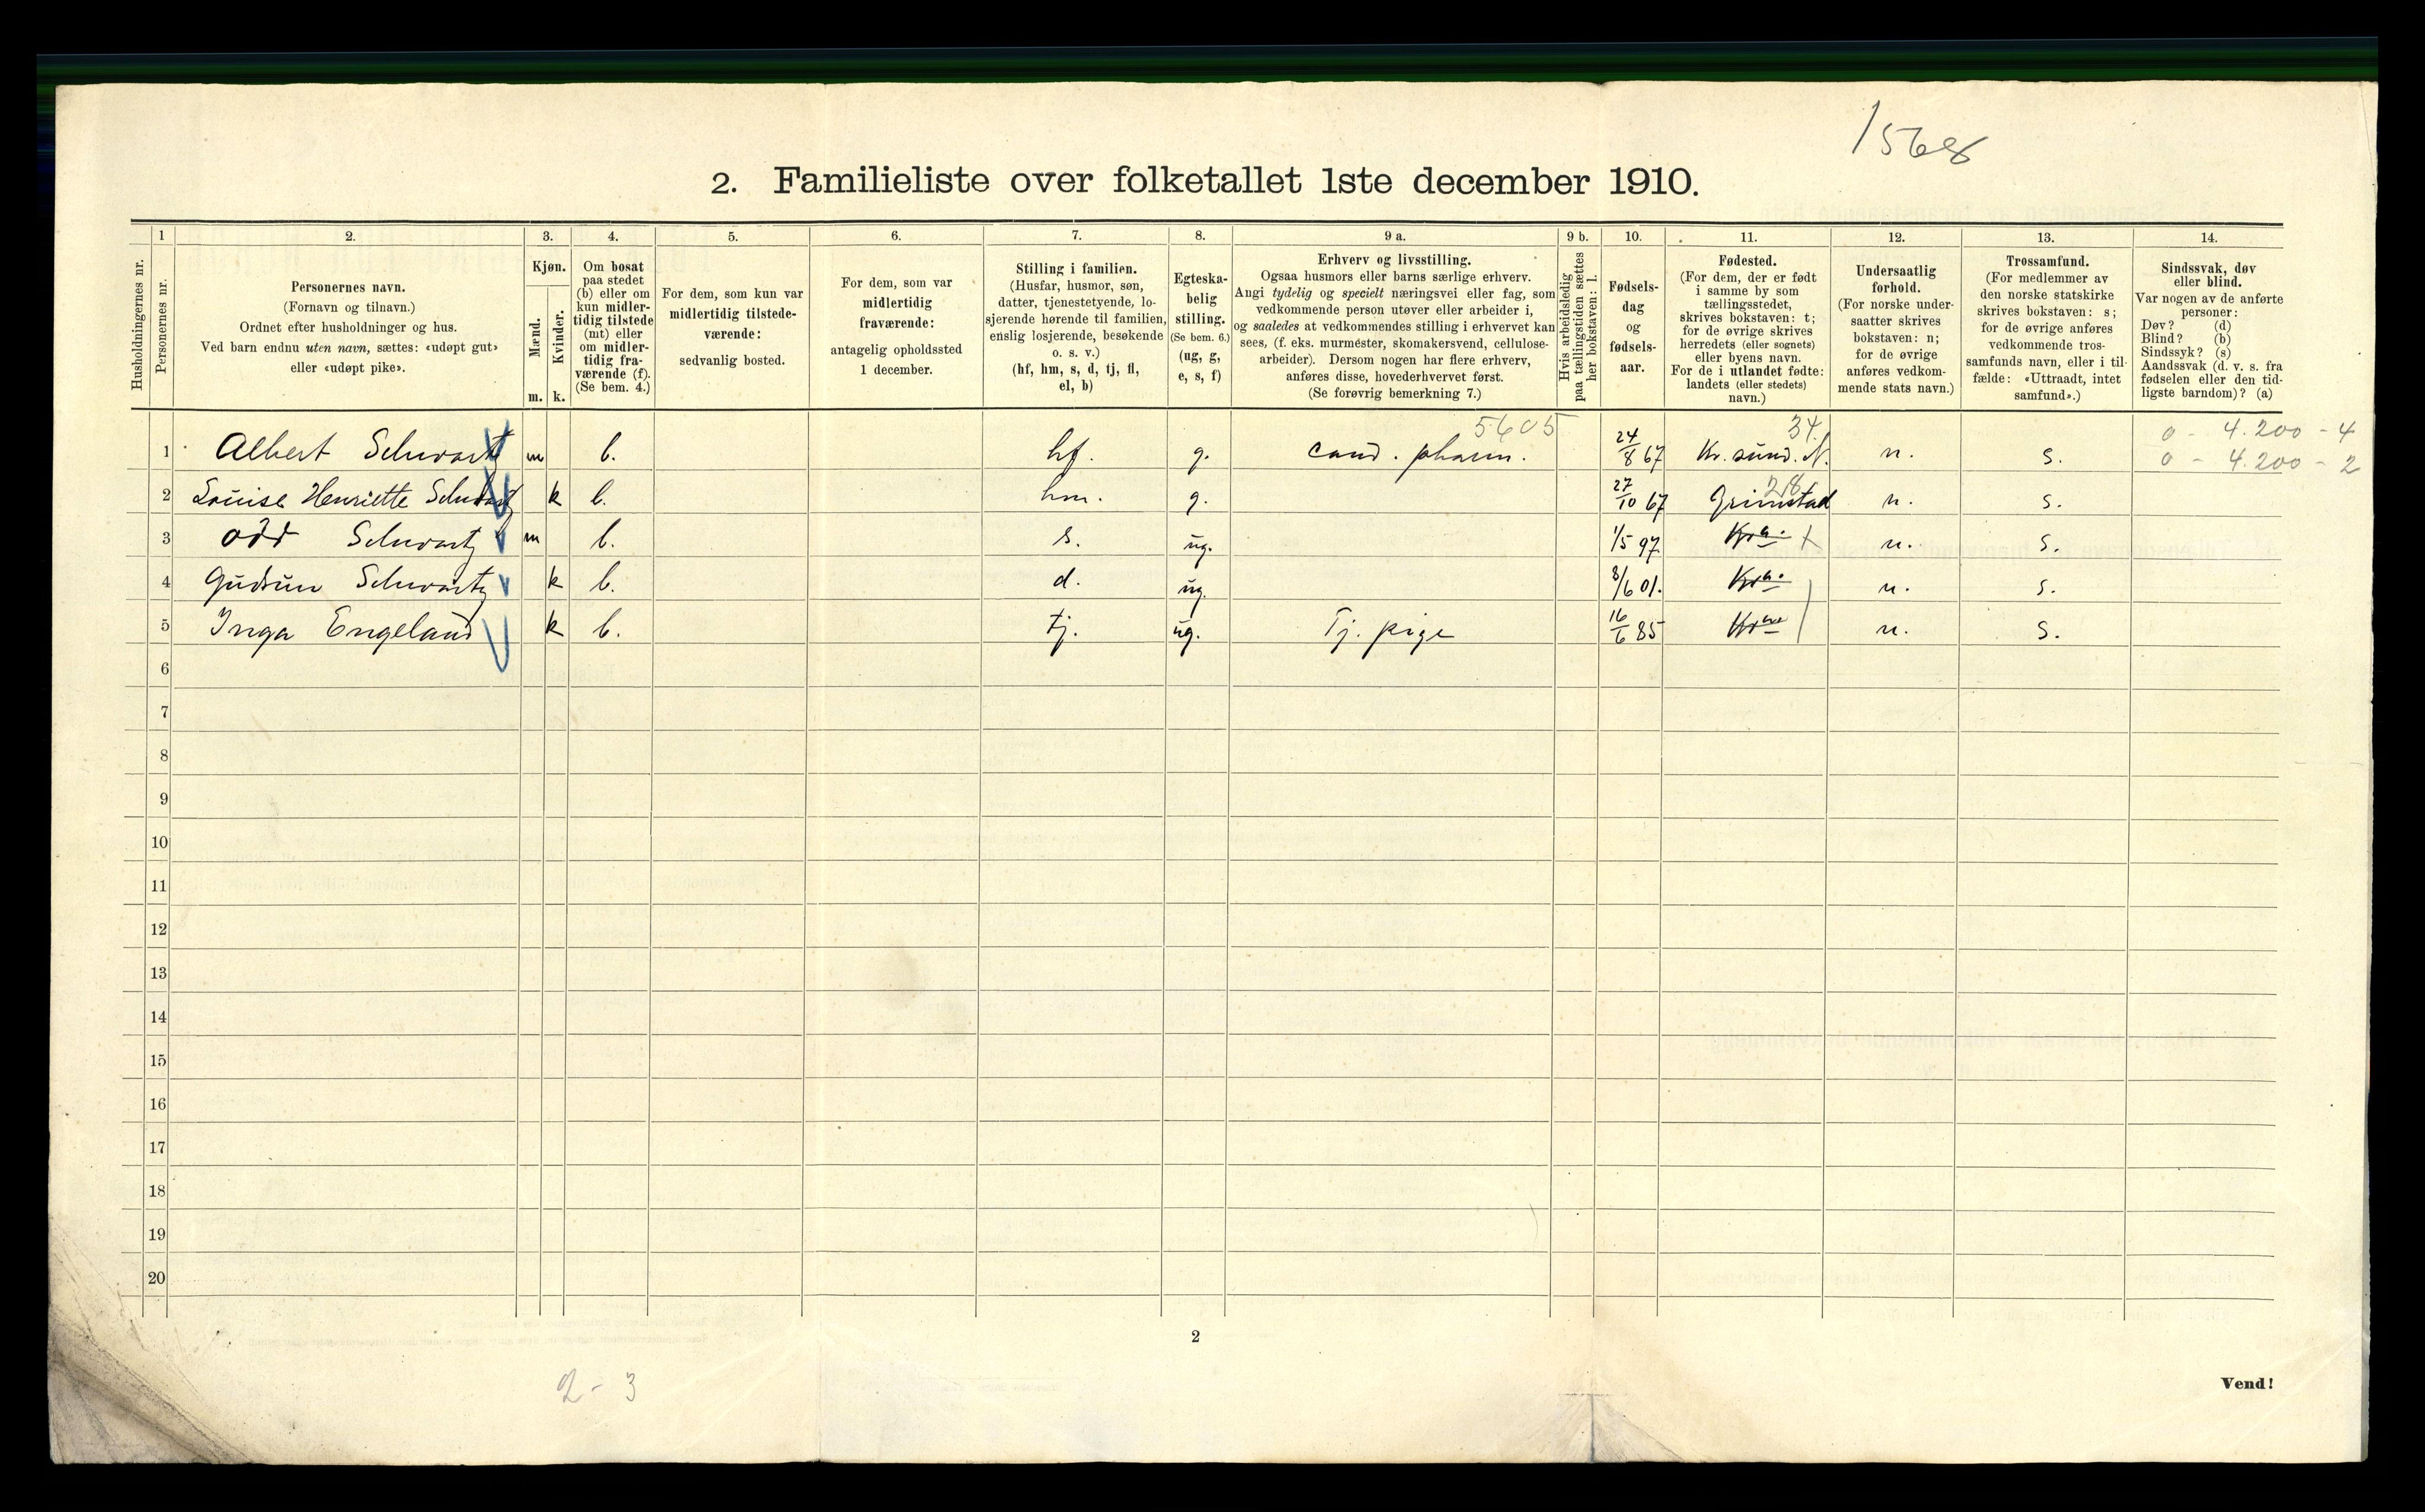 1568
2. Familieliste over folketallet 1ste december 1910.
Husholdningernes nr.
1
Personernes nr.
2.
Personernes navn.
(Fornavn og tilnavn.)
Ordnet efter husholdninger og hus.
Ved barn endnu uten navn, sættes: «udøpt gut»
eller «udøpt pike».
3.
Kjøn.
Mænd.
Kvinder.
m. k.
4.
Om bosat
paa stedet
(b) eller om
kun midler-
tidig tilstede
(mt) eller
om midler-
tidig fra-
værende (f).
(Se bem. 4.)
5.
For dem, som kun var
midlertidig tilstede-
værende:
sedvanlig bosted.
6.
For dem, som var
midlertidig
fraværende:
antagelig opholdssted
1 december.
7.
Stilling i familien.
(Husfar, husmor, søn,
datter, tjenestetyende, lo-
sjerende hørende til familien,
enslig losjerende, besøkende
o. s. v.)
(hf, hm, s, d, tj, fl,
el, b)
8.
Egteska-
belig
stilling.
(Se bem. 6.)
(ug, g,
e, s, f)
9 a.
Erhverv og livsstilling.
Ogsaa husmors eller barns særlige erhverv.
Angi tydelig og specielt næringsvei eller fag, som
vedkommende person utøver eller arbeider i,
og saaledes at vedkommendes stilling i erhvervet kan
sees, (f. eks. murmester, skomakersvend, cellulose-
arbeider). Dersom nogen har flere erhverv,
anføres disse, hovederhvervet først.
(Se forøvrig bemerkning 7.)
9 b.
Hvis arbeidsledig
paa tællingstiden sættes
her bokstaven: l.
10.
Fødsels-
dag
og
fødsels-
aar.
11.
Fødested.
(For dem, der er født
i samme by som
tællingsstedet,
skrives bokstaven: t;
for de øvrige skrives
herredets (eller sognets)
eller byens navn.
For de i utlandet fødte:
landets (eller stedets)
navn.)
12.
Undersaatlig
forhold.
(For norske under-
saatter skrives
bokstaven: n;
for de øvrige
anføres vedkom-
mende stats navn.)
13.
Trossamfund.
(For medlemmer av
den norske statskirke
skrives bokstaven: s;
for de øvrige anføres
vedkommende tros-
samfunds navn, eller i til-
fælde: «Uttraadt, intet
samfund».)
14.
Sindssvak, døv
eller blind.
Var nogen av de anførte
personer:
Døv? (d)
Blind? (b)
Sindssyk? (s)
Aandssvak (d. v. s. fra
fødselen eller den tid-
ligste barndom)? (a)
5605 34 0 - 4.200 - 4
1 Albert Schwartz m b. hf. g. cand. pharm. 24/8 67 Kr.sund. N. n. s. 0 - 4.200 - 2
28
2 Louise Henriette Schwartz k b. hm. g. 27/10 67 Grimstad n. s.
3 Odd Schwartz m b. s. ug. 1/5 97 Kra. t n. s.
4 Gudrun Schwartz k b. d. ug. 8/6 01. Kra. n. s.
5 Inga Engeland k b. tj. ug. Tj. pige 16/6 85 Kra n. s.
6
7
8
9
10
11
12
13
14
15
16
17
18
19
20
2
2 - 3
Vend!